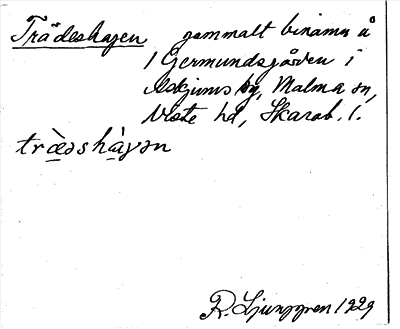 Trädeshagen gammalt binamn å
1 Germundsgården i
Askjums by, Malma sn,
Viste hd, Skarab. l.
træ̀əshàγən
R. Ljunggren 1929